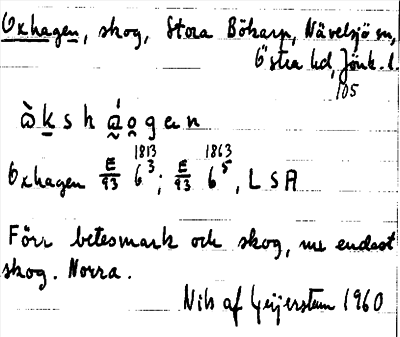 Oxhagen, skog, Stora Böharp, Nävelsjö sn,
Östra hd, Jönk. l.
105
ὼkshágen
Oxhagen E/93 1813 6 3; E/93 1863 6 5, LSA
Förr betesmark och skog, nu endast
skog. Norra.
Nils af Geijerstam 1960